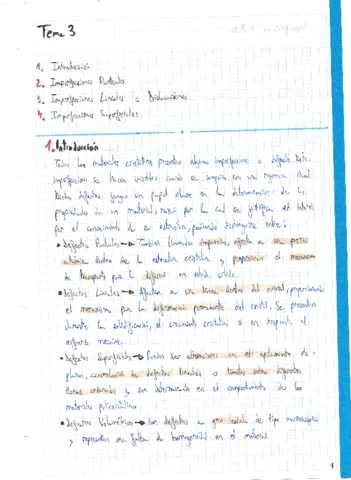 Tema 3
1. Introducción
2. Imperfecciones Puntuales
3. Imperfecciones Lineales o Dislocaciones
4. Imperfecciones Superficiales
1. Introducción
Todos los materiales cristalinos presentan algunas imperfecciones o defectos. Estas
imperfecciones se hacen visibles cuando se amplía en una región
Dichos defectos juegan un papel clave en la determinación de las
propiedades de un material, razón por la cual se justifica el interés
por el conocimiento de su estructura, pudiendo distinguirse entre:
• Defectos Puntuales → También llamados afecta a
dentro de la estructura cristalina y proporcionan el mecanismo
de transporte para la difusión en estado sólido.
• Defectos Lineales → Afectan a una línea dentro del cristal, proporcionando
el mecanismo para la deformación permanente del cristal. Se presentan
durante la solidificación, el crecimiento cristalino o en respuesta al
esfuerzo mecánico.
• Defectos Superficiales → Pueden ser alteraciones en el apilamiento de
planos, acumulación de defectos lineales o límites entre diferentes
zonas ordenadas y son determinantes en el comportamiento de los
materiales policristalinos.
• Defectos Volumétricos → Son defectos a gran escala de tipo macroscópico
y representan una falta de homogeneidad en el material
1